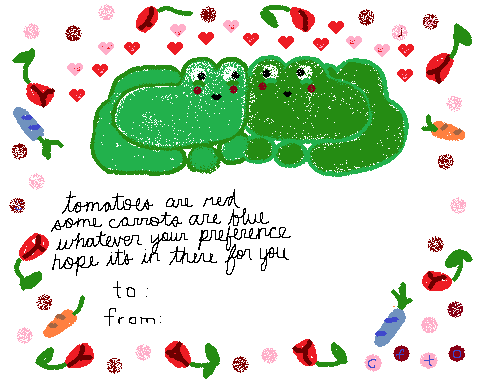 tomatoes are red
some carrots are blue
whatever your preference
hope it's in there for you
to:
from:
c f t o